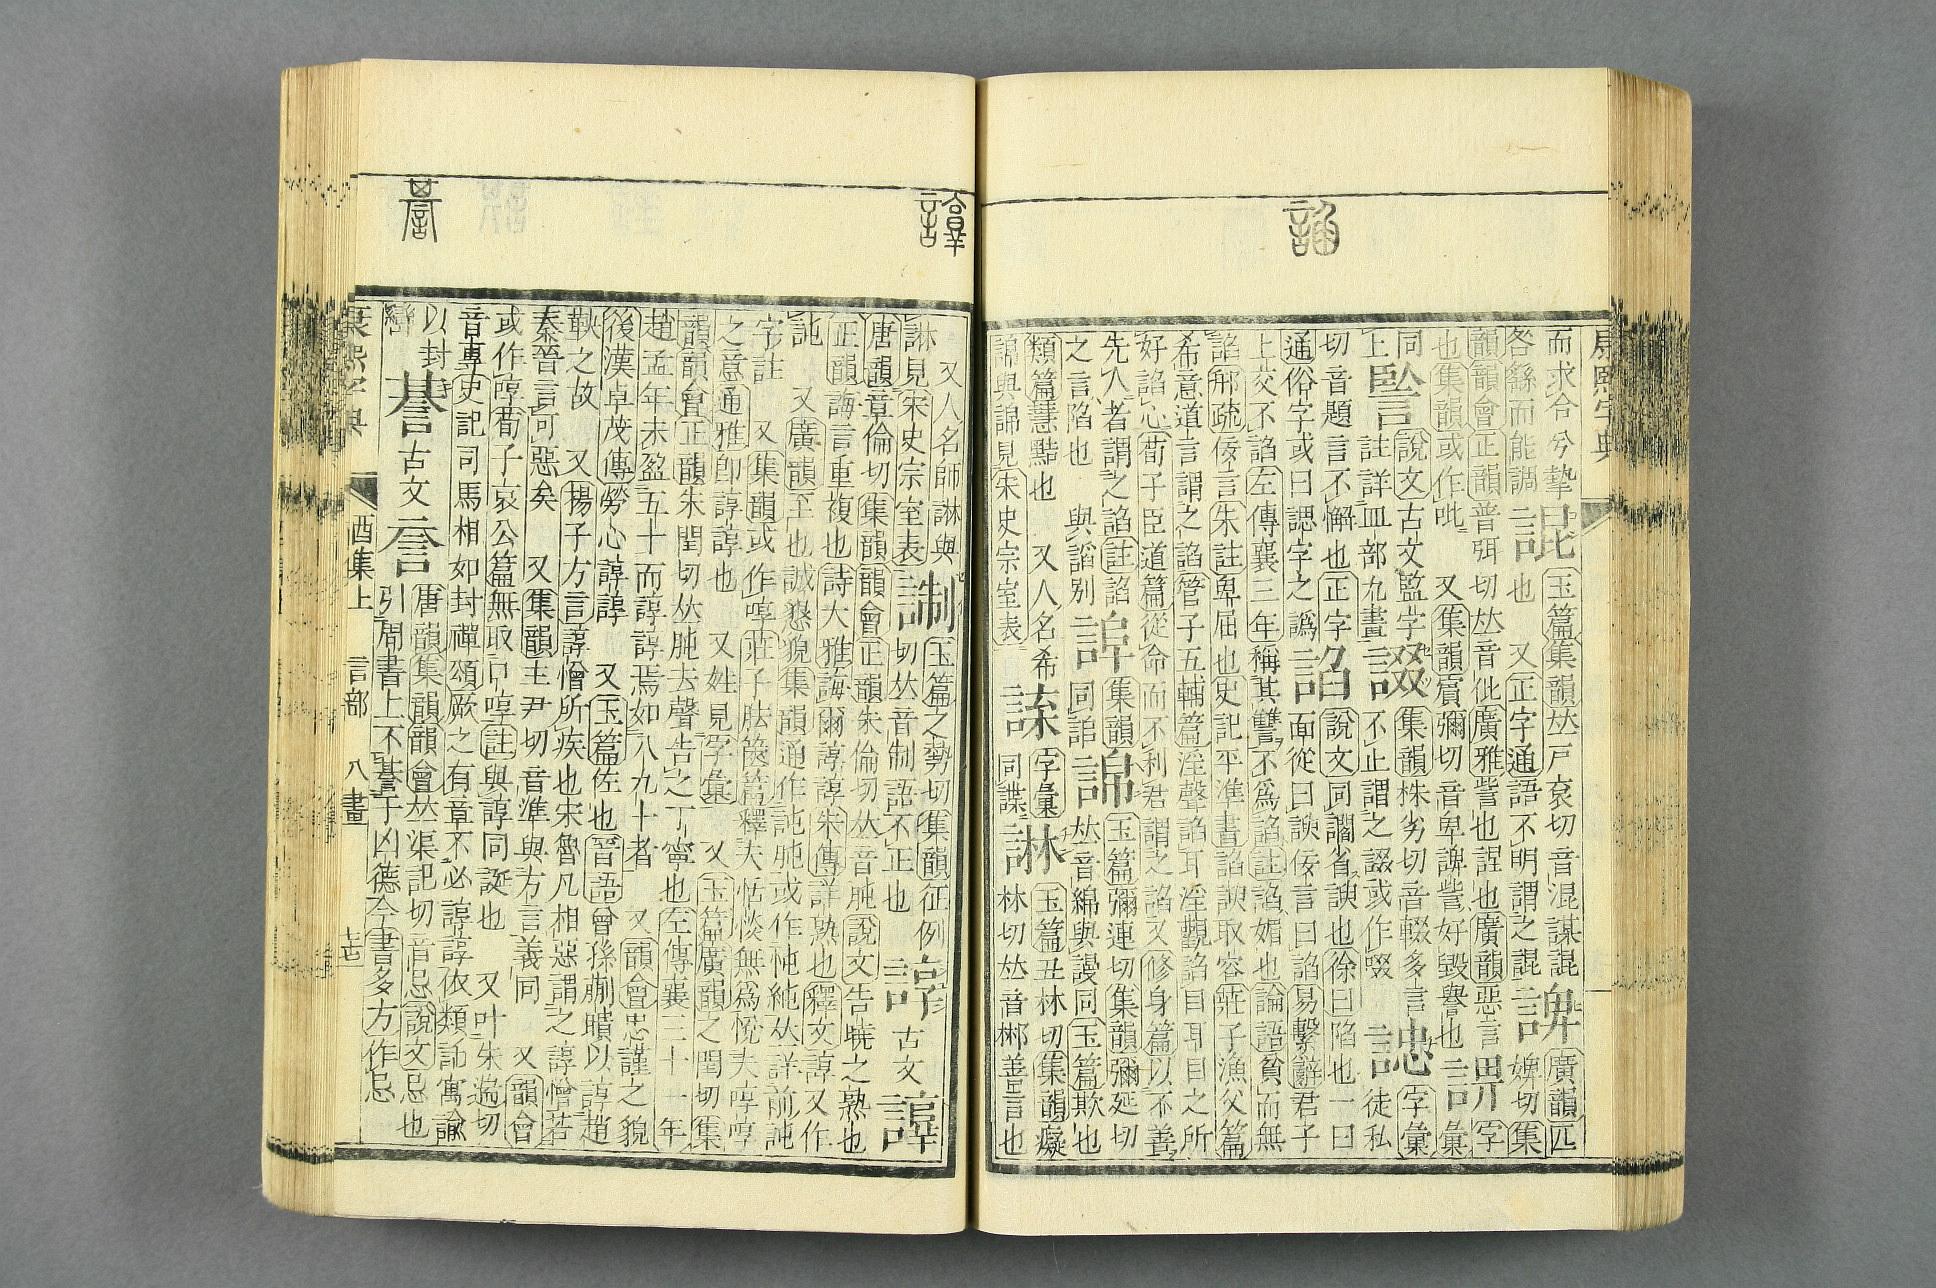 諂
康熙字典
而求合兮摯 䛰 玉篇集韻𠀤戸袞切音混謀䛰 諀 廣韻匹
咎繇而能調 也 又正字通語不明謂之䛰 婢切集
韻韻會正韻普弭切𠀤音仳廣雅訾也 也廣韻惡言 字
也集韻或作吡 又集韻賔彌切音卑諀訾好毀譽也 彙
同 說文古文監字 諁 集韻株劣切音輟多言 諰 字彙
上 註詳皿部九畫 不止謂之諁或作啜 徒私
切音題言不懈也正字 諂 說文同讇省諛也徐曰陷也一曰
通俗字或曰諰字之譌 面從曰諛佞言曰諂易繫辭君子
上交不諂左傳襄三年稱其讐不爲諂註諂媚也論語貧而無
諂邢疏佞言朱註卑屈也史記平準書諂諛取容莊子漁父篇
希意道言謂之諂管子五輔篇淫聲諂耳淫觀諂目耳目之所
好諂心荀子臣道篇從命而不利君謂之諂又修身篇以不善
先人者謂之諂註諂 𧨳 集韻 䛲 玉篇彌連切集韻彌延切
之言陷也 與謟別 同 𠀤音綿與謾同玉篇欺也
類篇慧黠也 又人名希 字彙 玉篇丑林切集韻癡
䛲與䛲見宋史宗室表 同諜 林切𠀤音郴善言也
諄
諅
又人名師 與 玉篇之勢切集韻征例 諄 古文 𧫠
見宋史宗室表 切𠀤音制語不正也
唐韻章倫切集韻韻會正韻朱倫切𠀤音肫說文告曉之熟也
正韻誨言重複也詩大雅誨爾諄諄朱傳詳熟也釋文諄又作
訰 又廣韻至也誠懇貌集韻通作訰肫或作忳純𠀤詳前訰
字註 又集韻或作啍莊子胠篋篇釋夫恬淡無爲悅夫啍啍
之意通雅卽諄諄也 又姓見字彙 又玉篇廣韻之閏切集
韻韻會正韻朱閏切𠀤肫去聲告之丁寧也左傳襄三十一年
趙孟年未盈五十而諄諄焉如八九十者 又韻會忠謹之貌
後漢卓茂傳勞心諄諄 又玉篇佐也晉語曾孫蒯聵以諄趙
鞅之故 又揚子方言諄憎所疾也宋魯凡相惡謂之諄憎若
秦晉言可惡矣 又集韻主尹切音準與方言義同 又韻會
或作啍荀子哀公篇無取口啍註與諄同誕也 又叶朱遄切
音專史記司馬相如封禪頌厥之有章不必諄諄依類託寓諭
以封巒 諅 古文 唐韻集韻韻會𠀤渠記切音忌說文忌也
引周書上不諅于凶德今書多方作忌
康熙字典 酉集上 言部 八畫